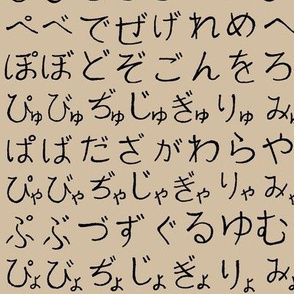 ぺべでぜげれめへ
ぽぼどぞごんをろ
ぴゅびゅぢゅじゅぎゅりゅみゅ
ぱばだざがわらや
ぴゃびゃぢゃじゃぎゃりゃみ
ぷぶづずぐるゆむ
ぴょびょぢょじょぎょりょみ